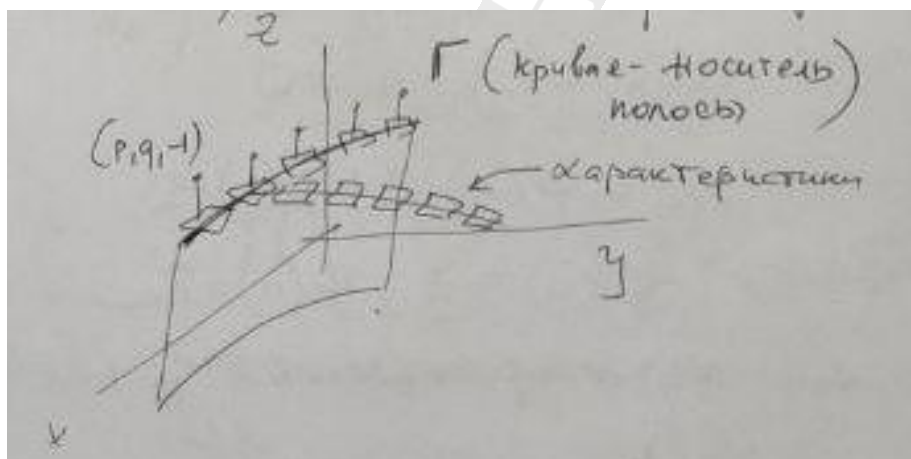 z
Γ (кривая - носитель
полосы)
(p,q,-1)
характеристики
y
x